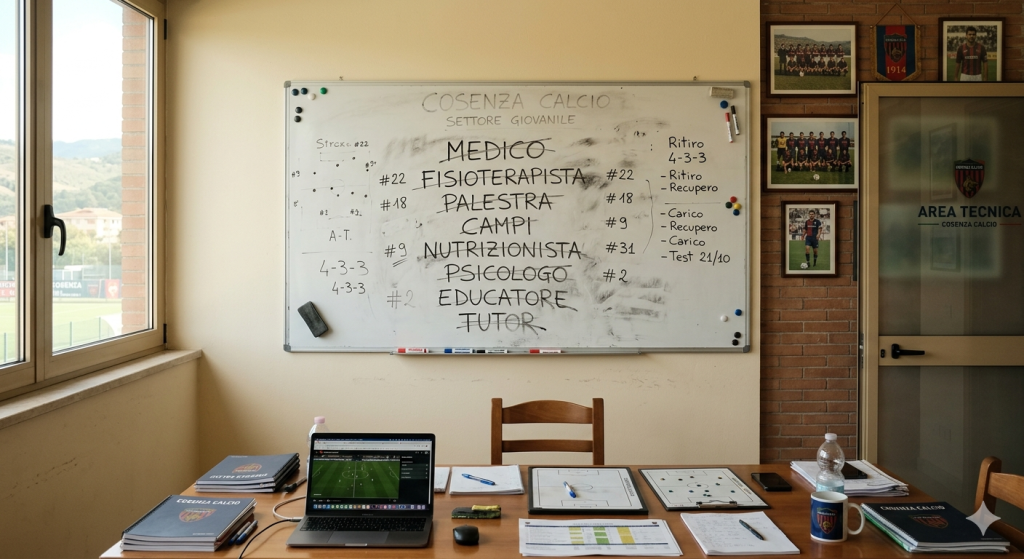 COSENZA CALCIO
SETTORE GIOVANILE
MEDICO
#22 FISIOTERAPISTA #22
#18 PALESTRA #18
CAMPI #9
#9 NUTRIZIONISTA #31
PSICOLOGO #2
#2 EDUCATORE
TUTOR
#22
A-T.
4-3-3
4-3-3
Ritiro
4-3-3
- Ritiro
- Recupero
- Carico
- Recupero
- Carico
- Test 21/10
1914
AREA TECNICA
COSENZA CALCIO
COSENZA CALCIO